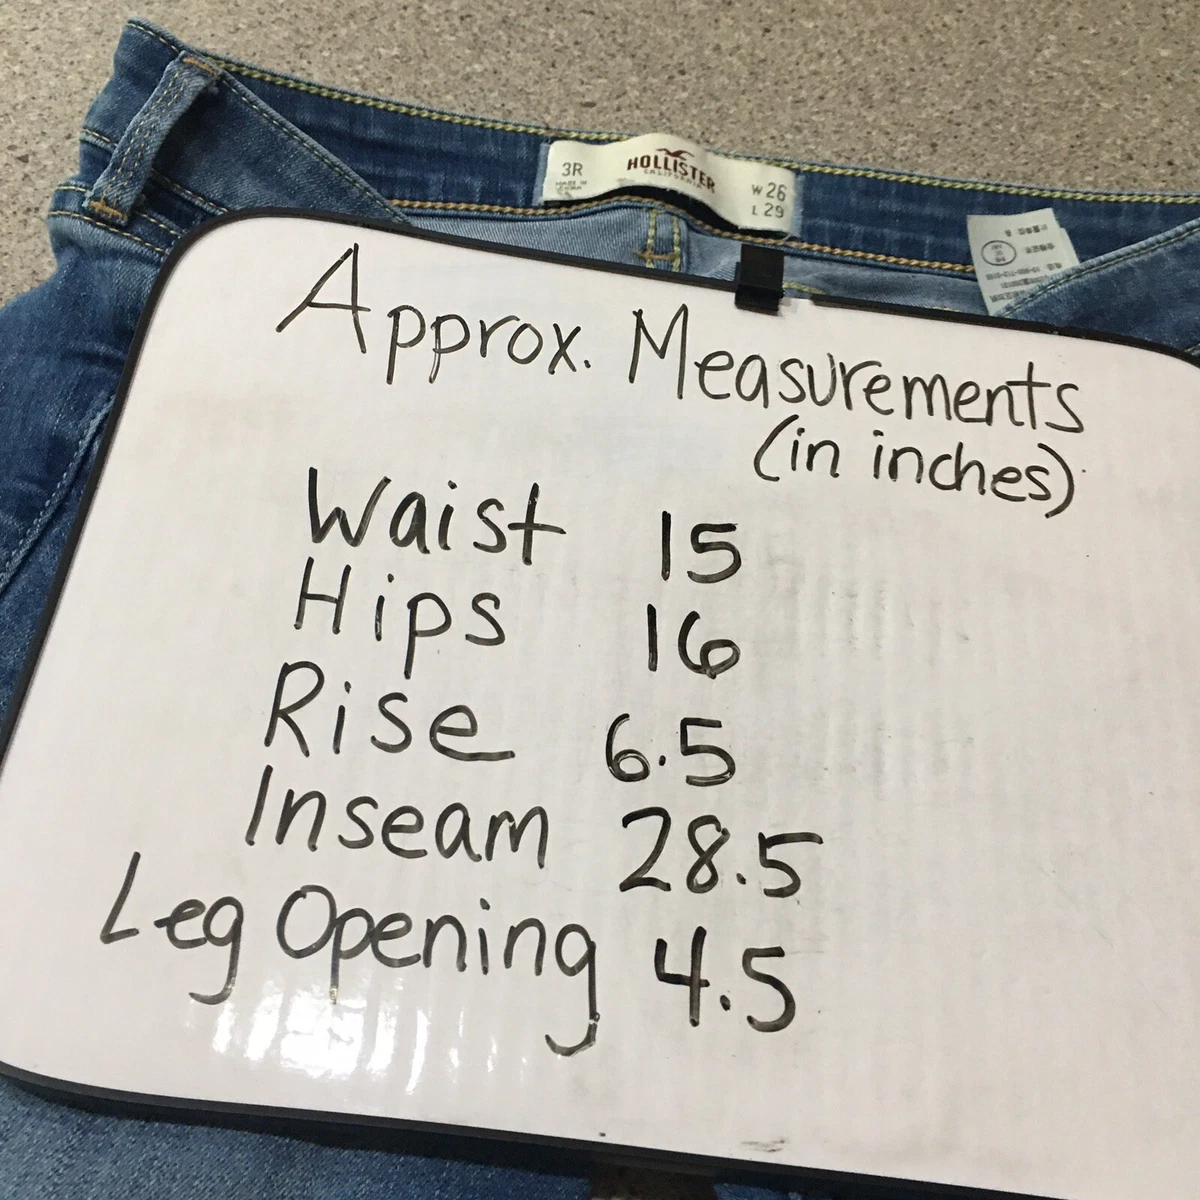 3R
HOLLISTER
CALIFORNIA
W 26
L 29
Approx. Measurements
(in inches)
Waist 15
Hips 16
Rise 6.5
Inseam 28.5
Leg Opening 4.5